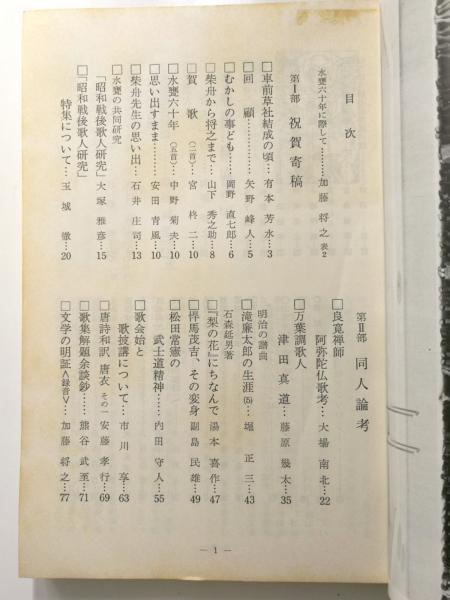 目次
水甕六十年に際して………加藤将之 表2
第Ⅰ部 祝賀寄稿
□車前草社結成の頃…有本芳水…3
□回顧………矢野峰人…5
□むかしの事ども……岡野直七郎…6
□柴舟から将之まで…山下秀之助…8
□賀歌(二首)…宮柊二…10
□水甕六十年(五首)…中野菊夫…10
□思い出すまま……安田青風…10
□柴舟先生の思い出…石井庄司…13
□水甕の共同研究
「昭和戦後歌人研究」大塚雅彦…15
□「昭和戦後歌人研究」
特集について…玉城徹…20
第Ⅱ部 同人論考
□良寛禅師
阿弥陀仏歌考…大場南北…22
□万葉調歌人
津田真道…藤原幾太…35
明治の譜曲
□滝廉太郎の生涯(5)…堀正三…43
石森延男著
□『梨の花』にちなんで 湯本喜作…47
□悍馬茂吉、その変身 副島民雄…49
□松田常憲の
武士道精神……内田守人…55
□歌会始と
歌披講について…市川享…63
□唐詩和訳 唐衣 その一 安藤孝行…69
□歌集解題余談鈔……熊谷武至…71
□文学の明証<録音>…加藤将之…77
— 1 —